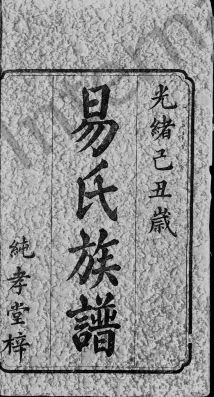 光緒己丑歲
易氏族譜
純孝堂梓